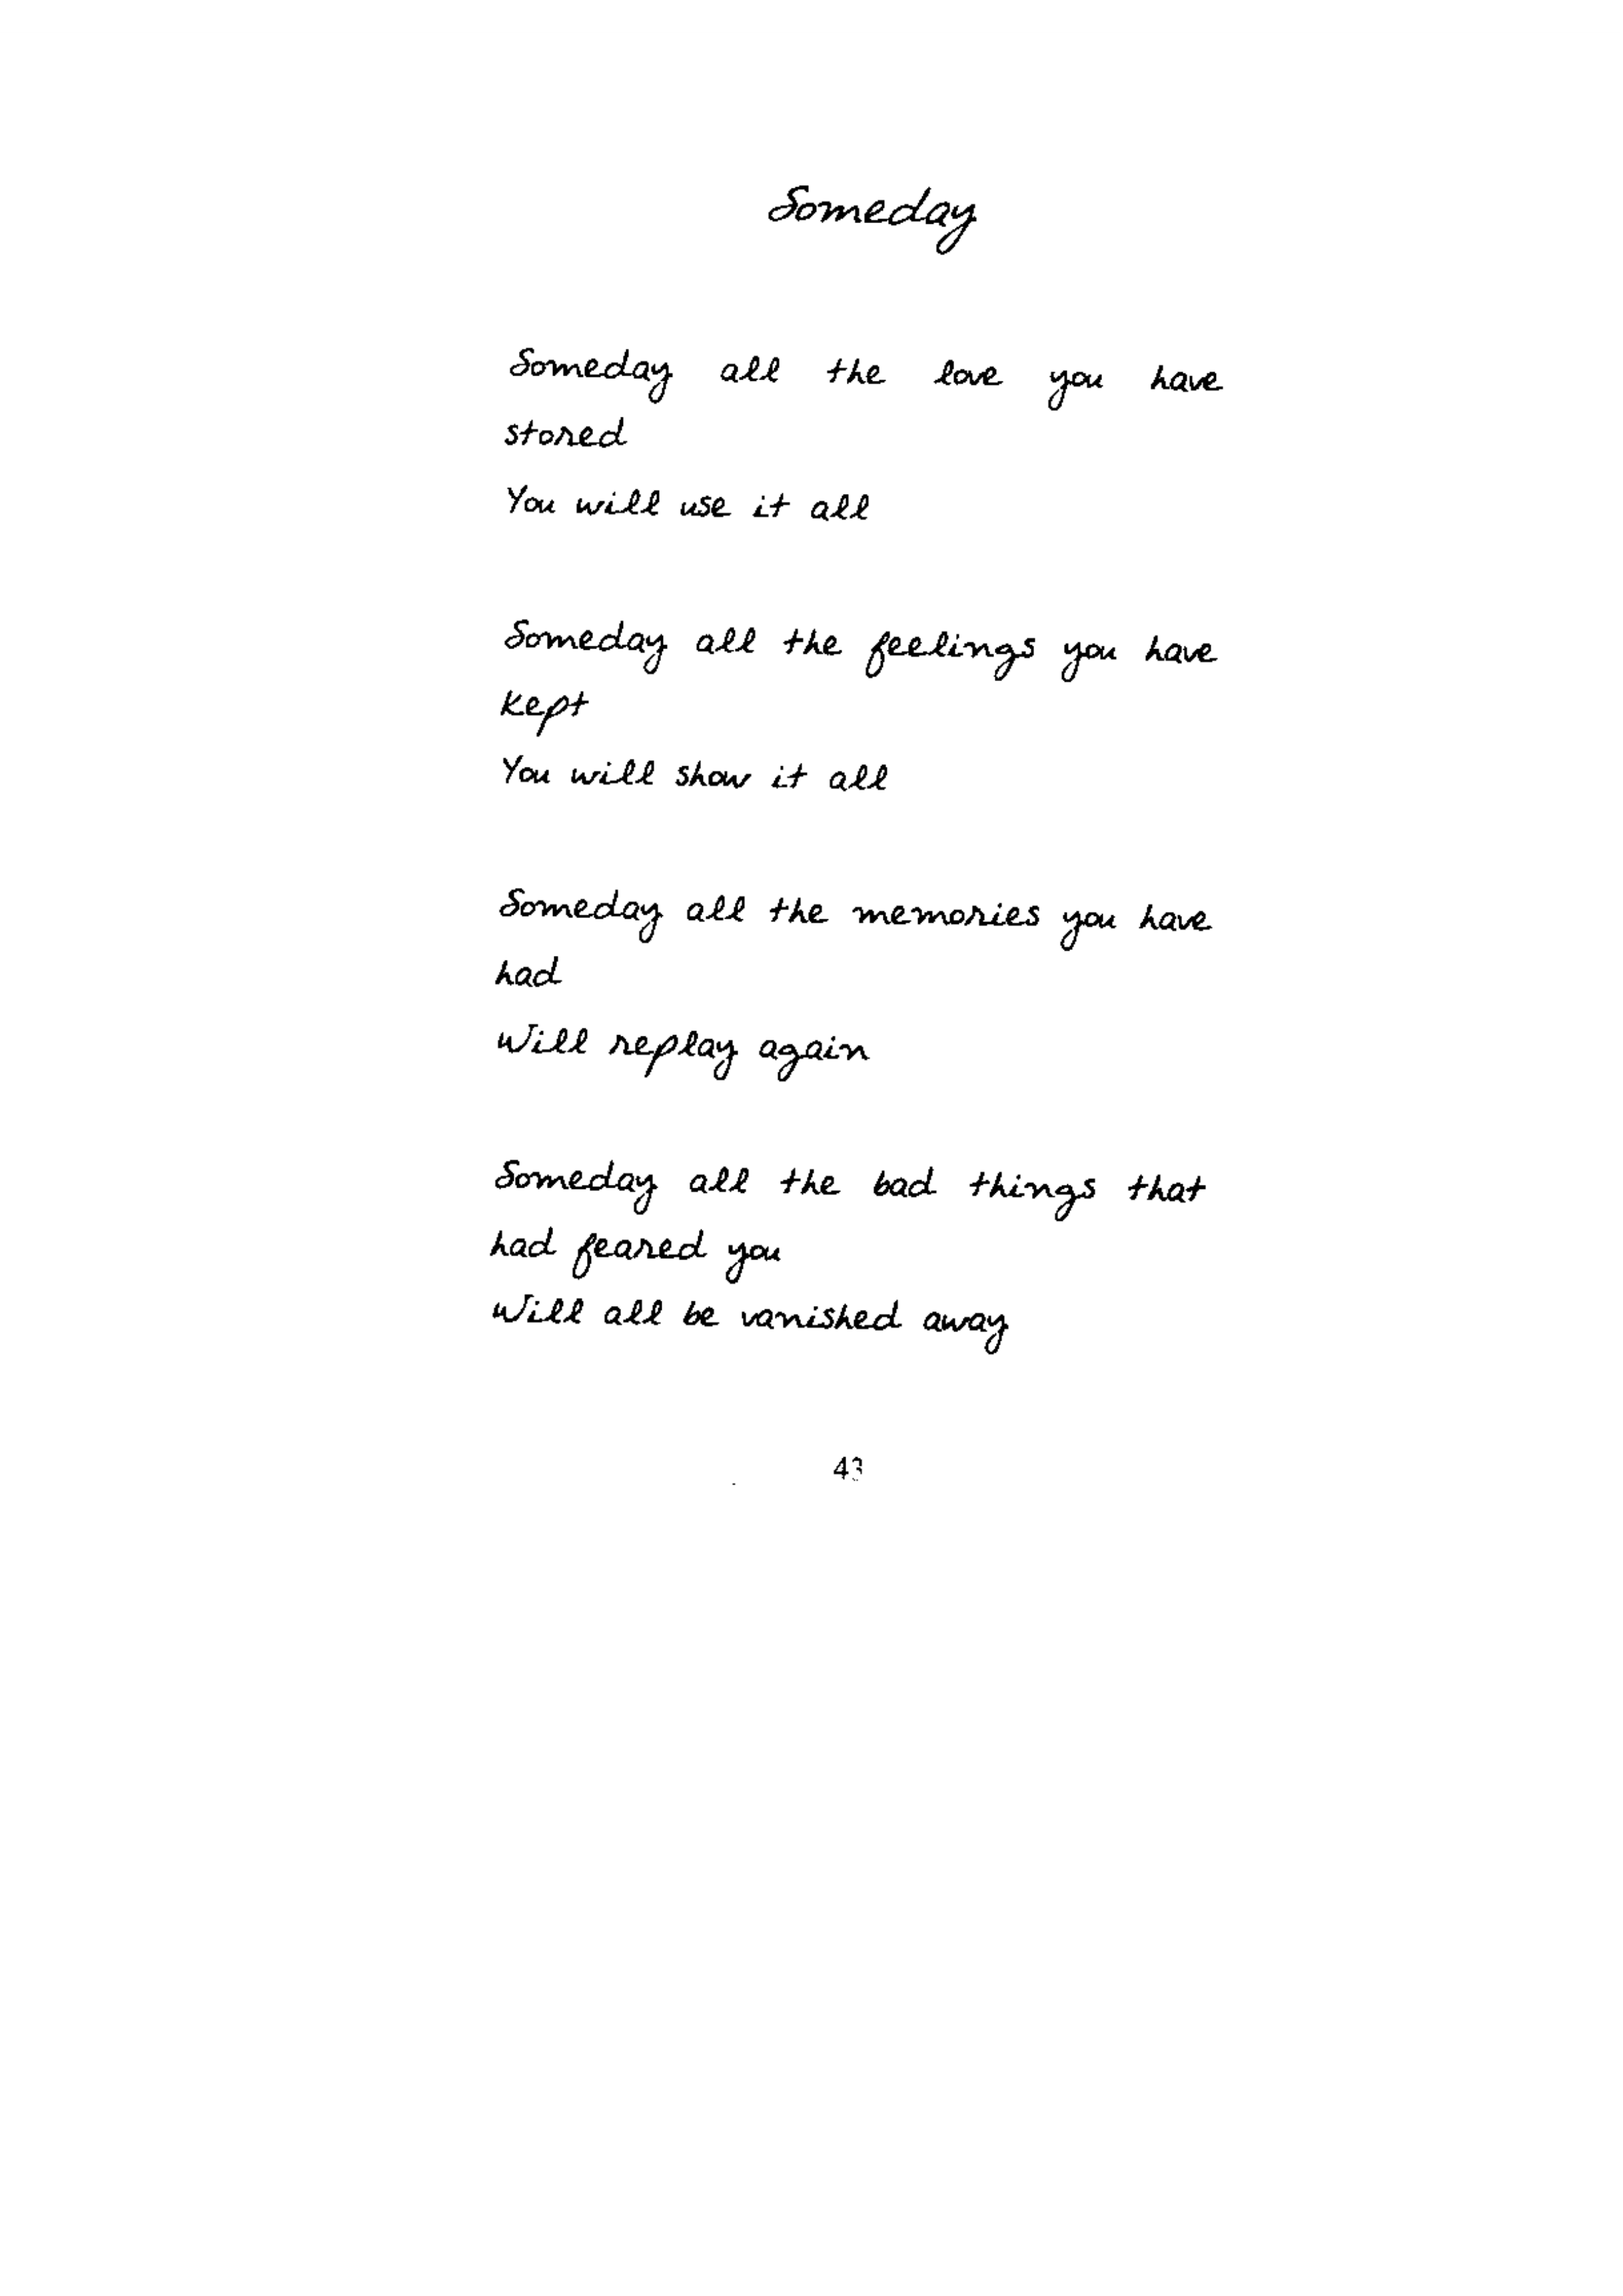 Someday
Someday all the love you have
stored
You will use it all
Someday all the feelings you have
kept
You will show it all
Someday all the memories you have
had
Will replay again
Someday all the bad things that
had feared you
Will all be vanished away
43